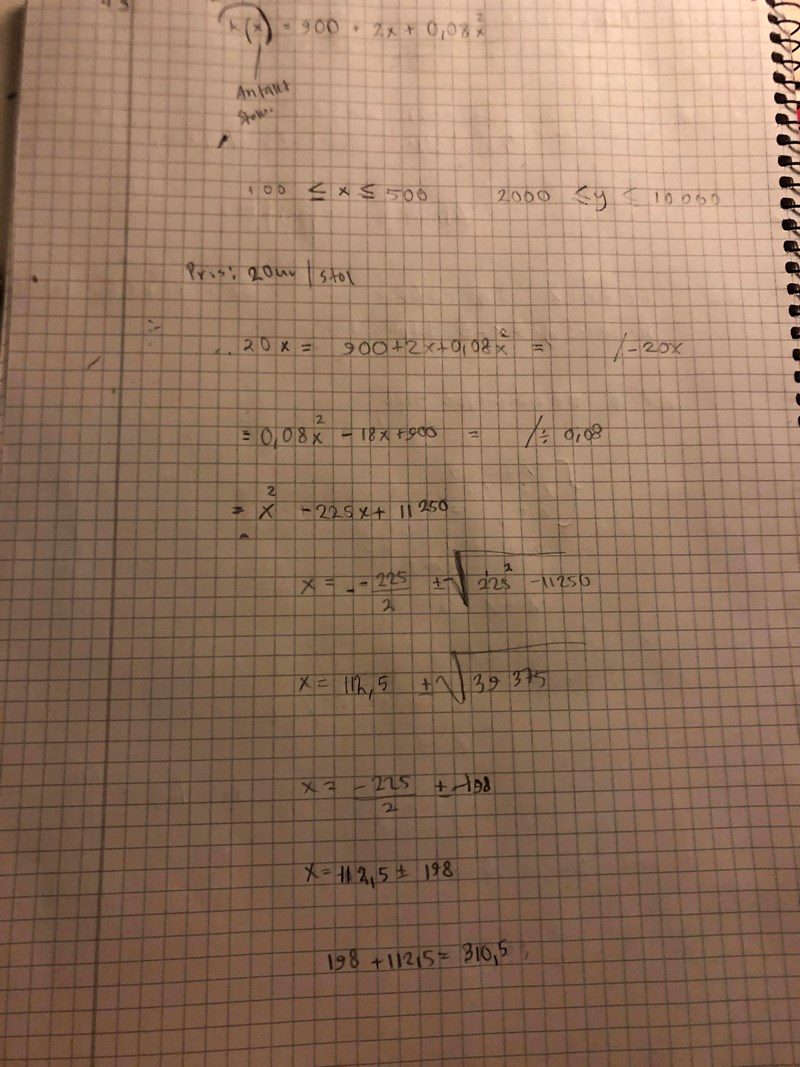 k(x) = 900 + 2x + 0,08x²
Antalet
stolar
100 ≤ x ≤ 500 2000 ≤ y ≤ 10000
Pris: 200kr / stol
20x = 900+2x+0,08x² = /-20x
= 0,08x² - 18x+900 = /÷ 0,08
= x² - 225x + 11250
x = - -225/2 ± √225² - 11250
x = 112,5 ± √39 375
x = -225/2 ± 198
x = 112,5 ± 198
198 + 112,5 = 310,5